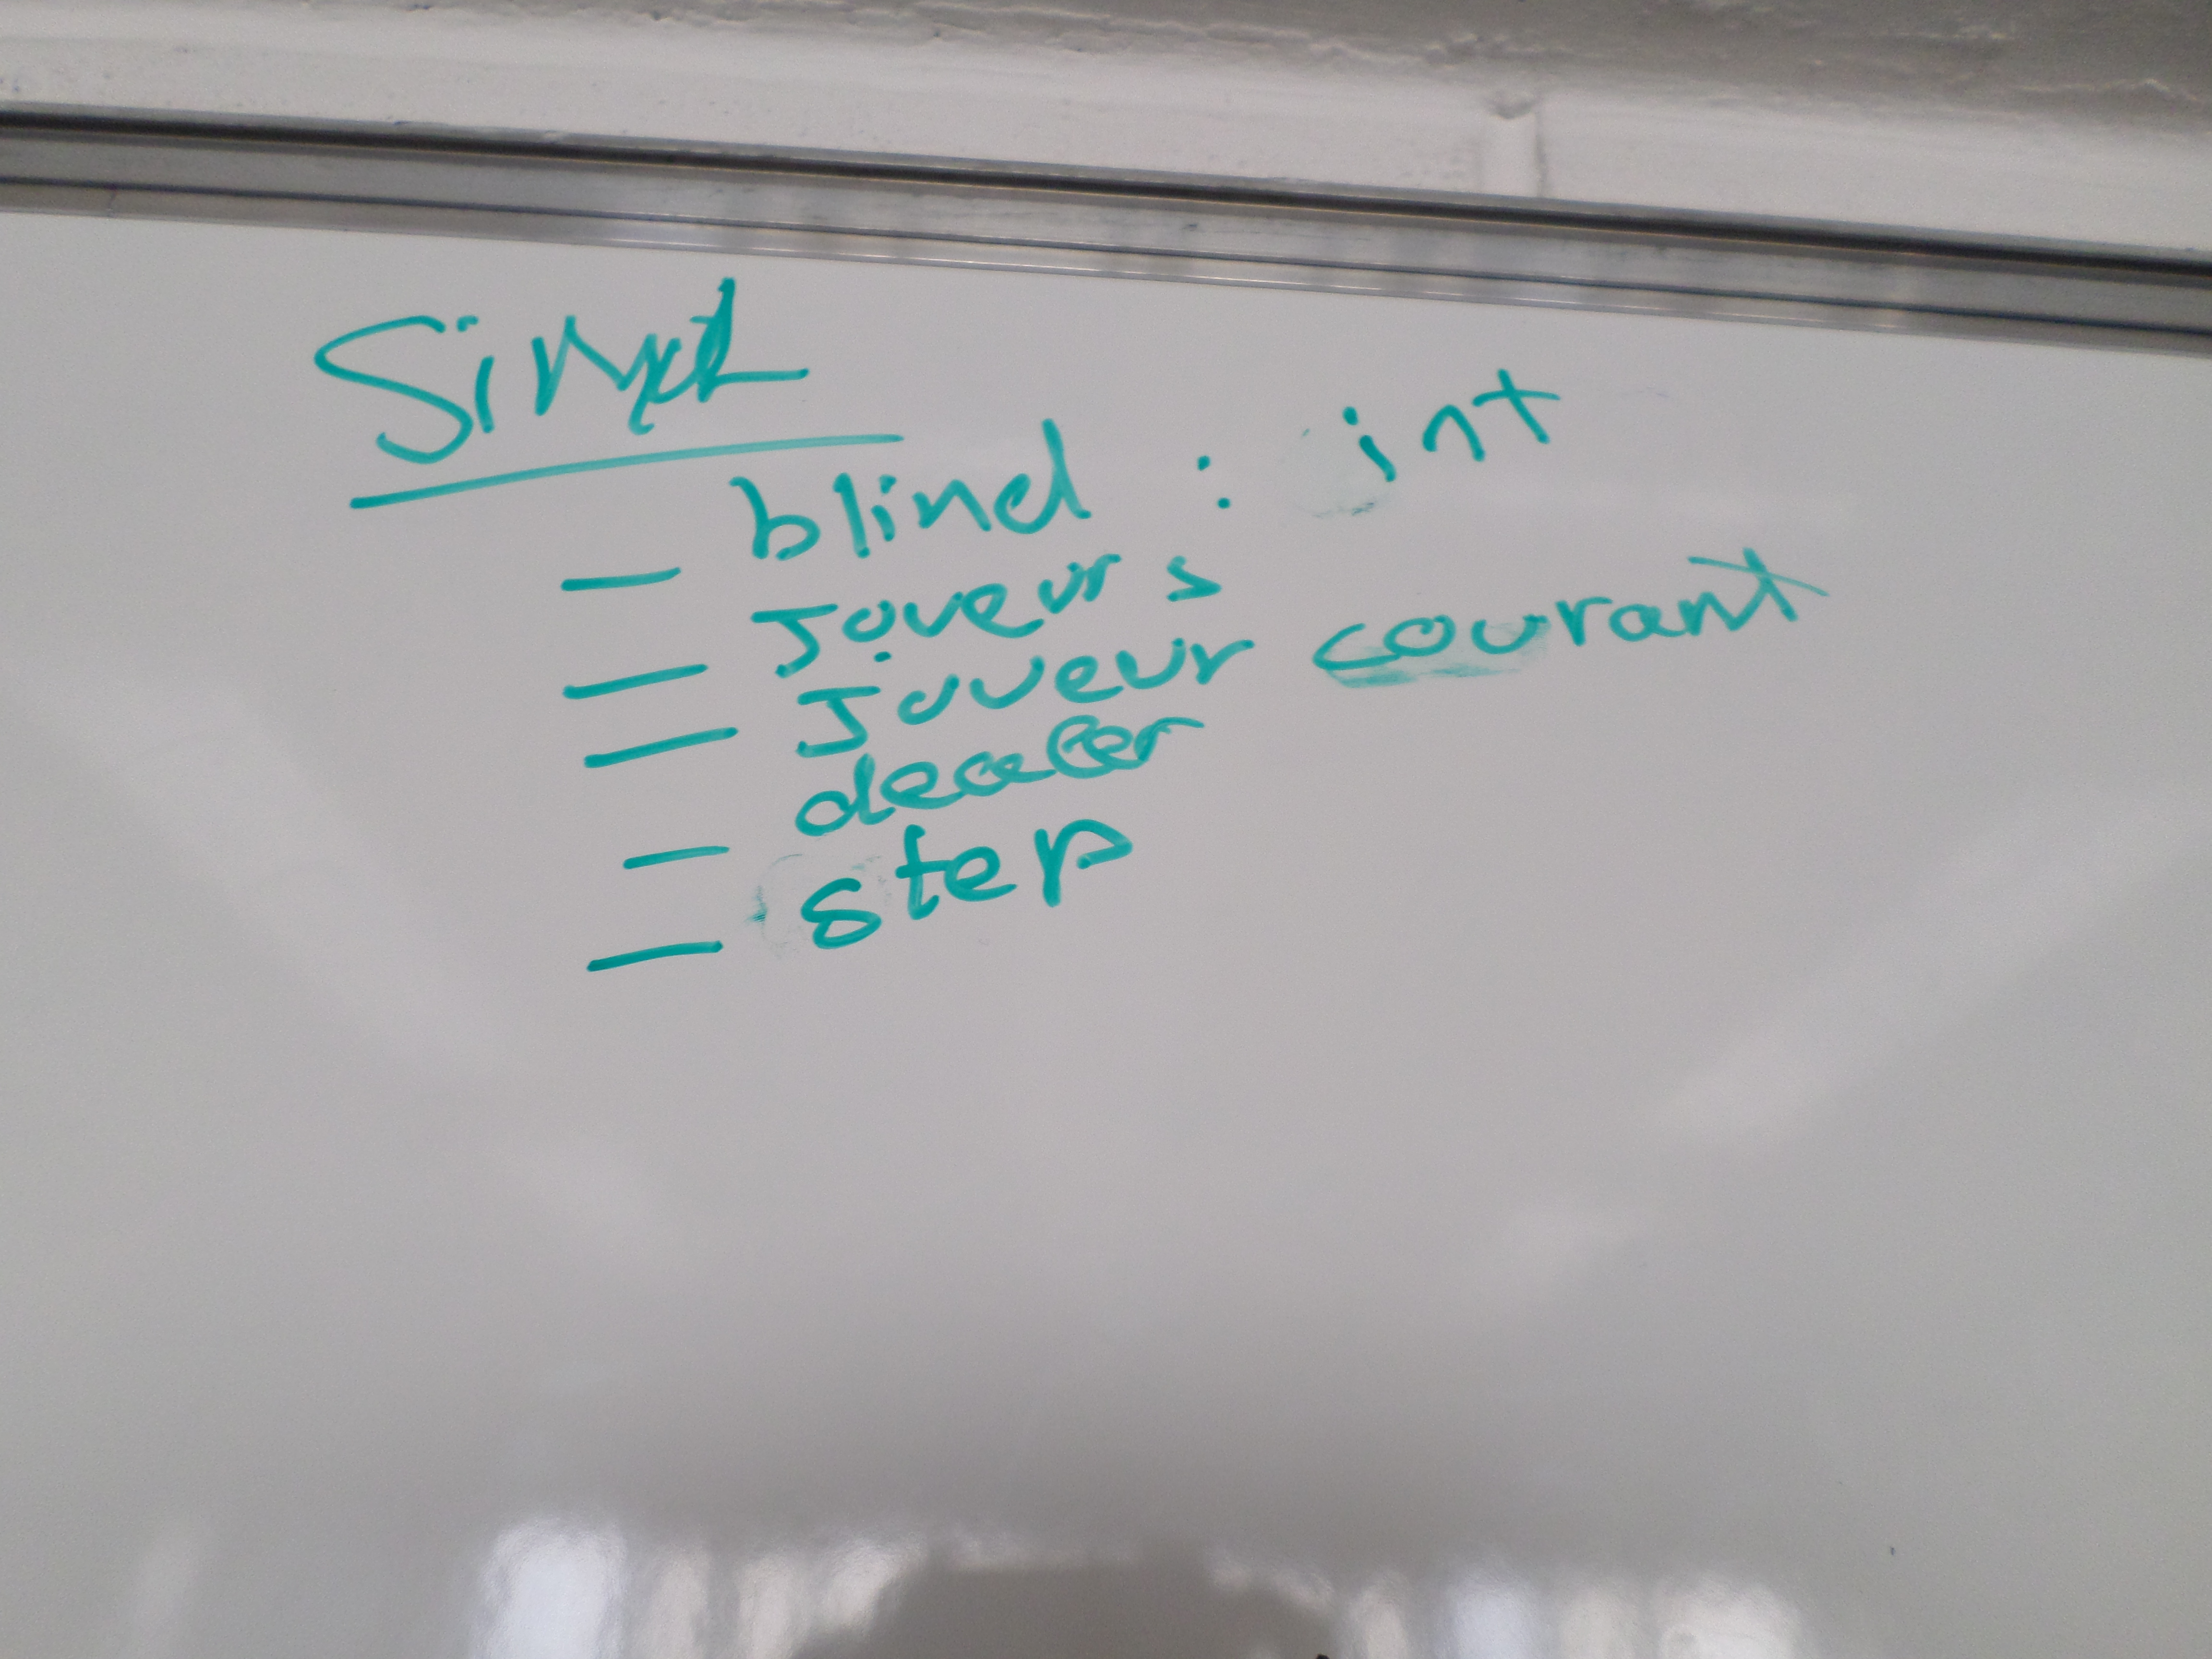 - blind : int
- Joueurs
- Joueur courant
- dealer
- step